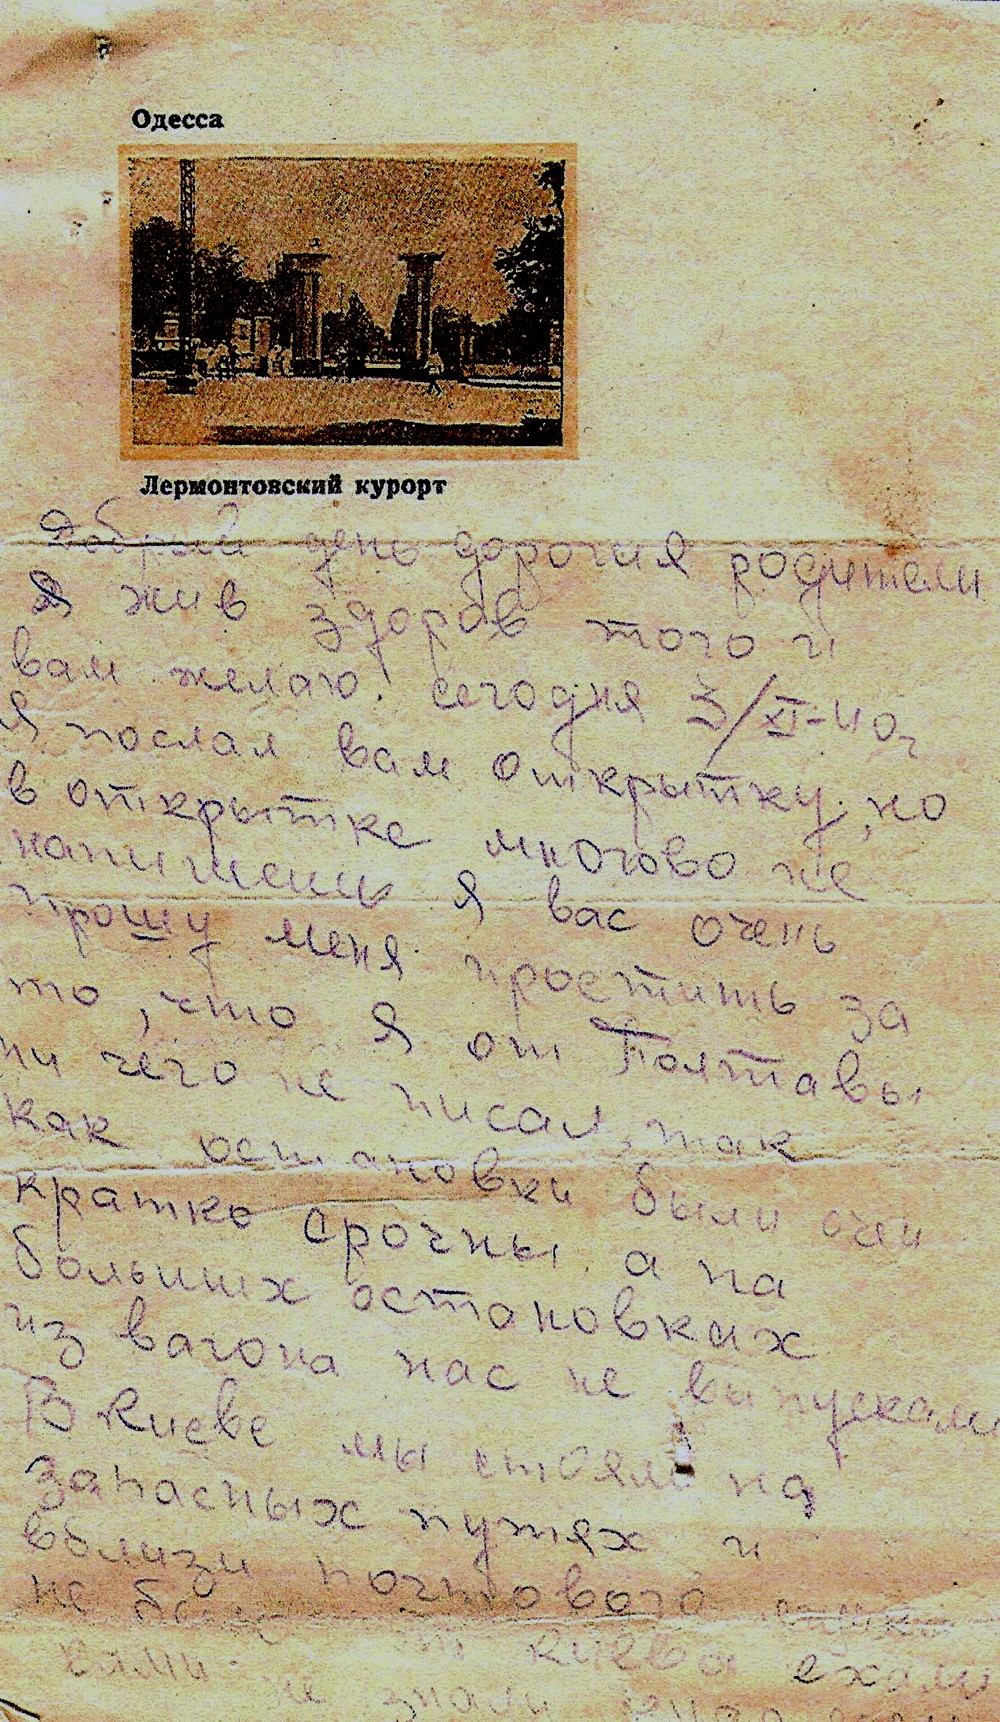 Одесса
Лермонтовский курорт
Добрый день дорогия родители
Я жив здоров того и
вам желаю! сегодня 3/XI-40г
Я послал вам открытку, но
в открытке многово не
напишеш я вас очень
прошу меня простить за
то, что я от Полтавы
ни чего не писал, так
как остановки были очен
кратко срочны а на
больших остановках
из вагона нас не выпускали
В Киеве мы стояли на
запасных путях и
вблизи почтового
не было от Киева ехали
не знали куда